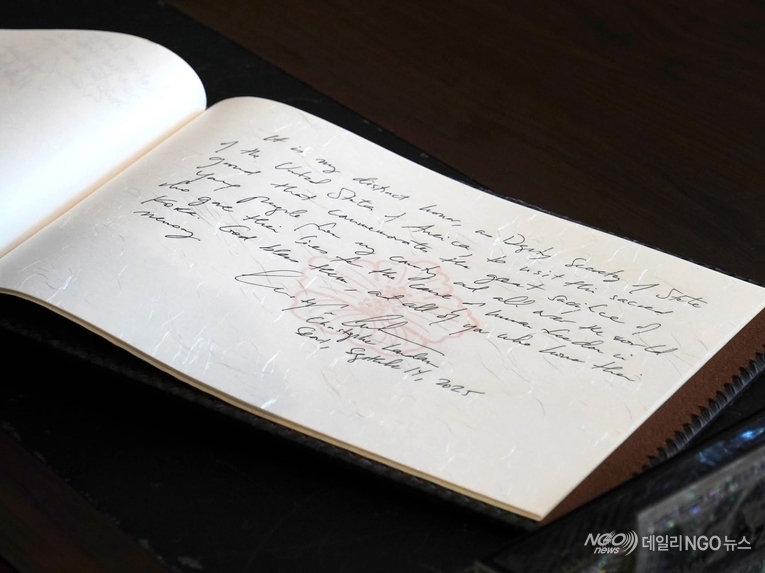 It is my distinct honor, as Deputy Secretary of State
of the United States of America to visit the sacred
ground that commemorates the great sacrifice of
young people from my country and all over the world
who gave their lives for the cause of human freedom in
Korea. God bless them and all of you who honor their
memory.
Christopher Landau
Seoul, September 14, 2025
NGO news 데일리NGO뉴스